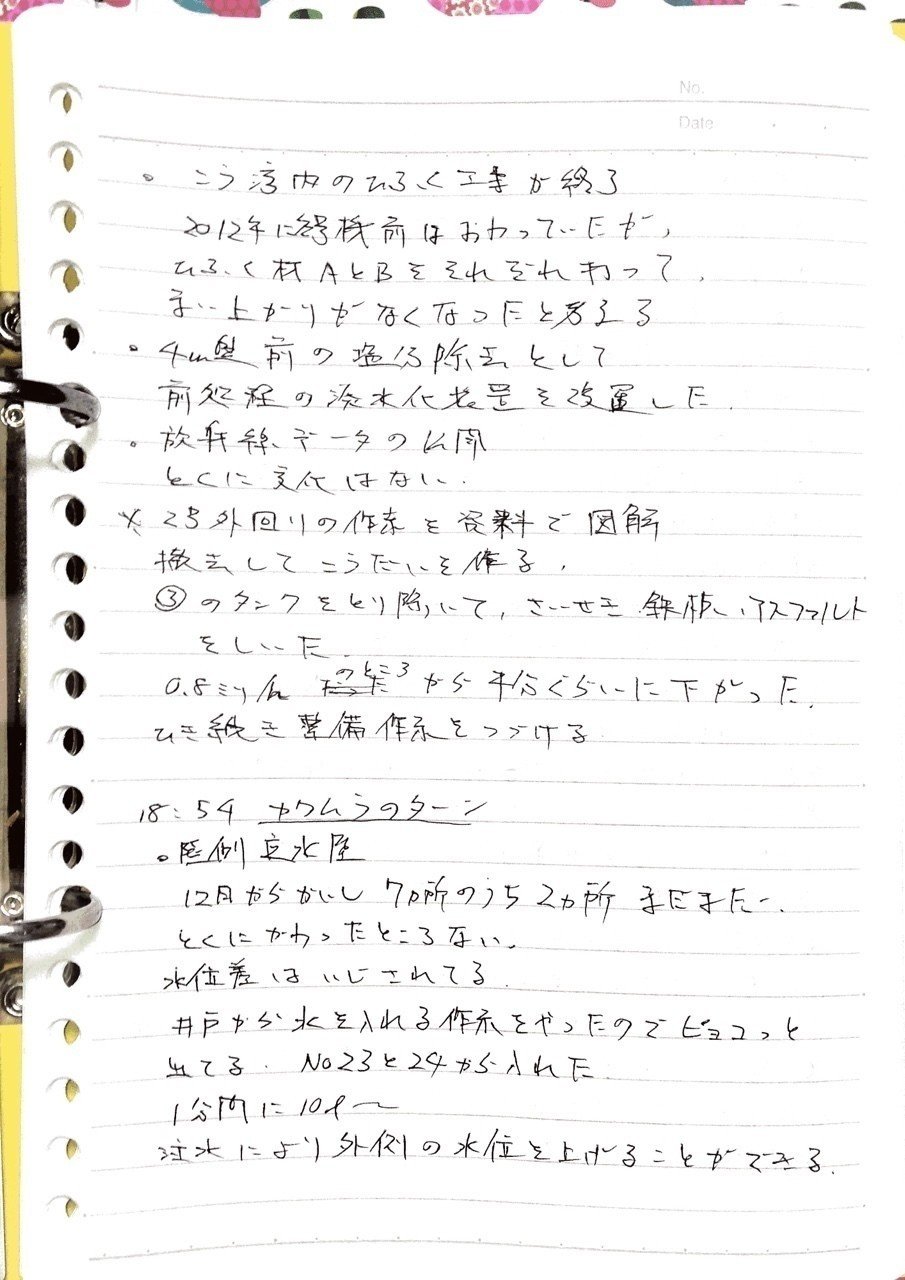 No.
Date
・こう湾内のひふく工事が終了
2012年に号機前はおわっていたが、
ひふく材AとBをそれぞれ打って、
まい上がりがなくなったと考える
・4m盤前の塩分除去として
前処理の淡水化装置を設置した.
・放射線データの公開
とくに変化はない.
※2号外回りの作業を資料で図解
撤去してこうたいを作る.
③のタンクをとり除いて、さいせき 鉄板、アスファルト
をしいた.
0.8ミリ/h のところ から半分くらいに下がった.
ひき続き整備作業をつづける
18:54 カワムラのターン
・陸側 水
12月からかいし 7ヵ所のうち2ヵ所 まだまだー.
とくにかわったところない.
水位差はいじされてる.
井戸から水を入れる作業をやったのでピョコっと
出てる. No23と24から入れた.
1分間に10ℓ〜
注水により外側の水位を上げることができる.